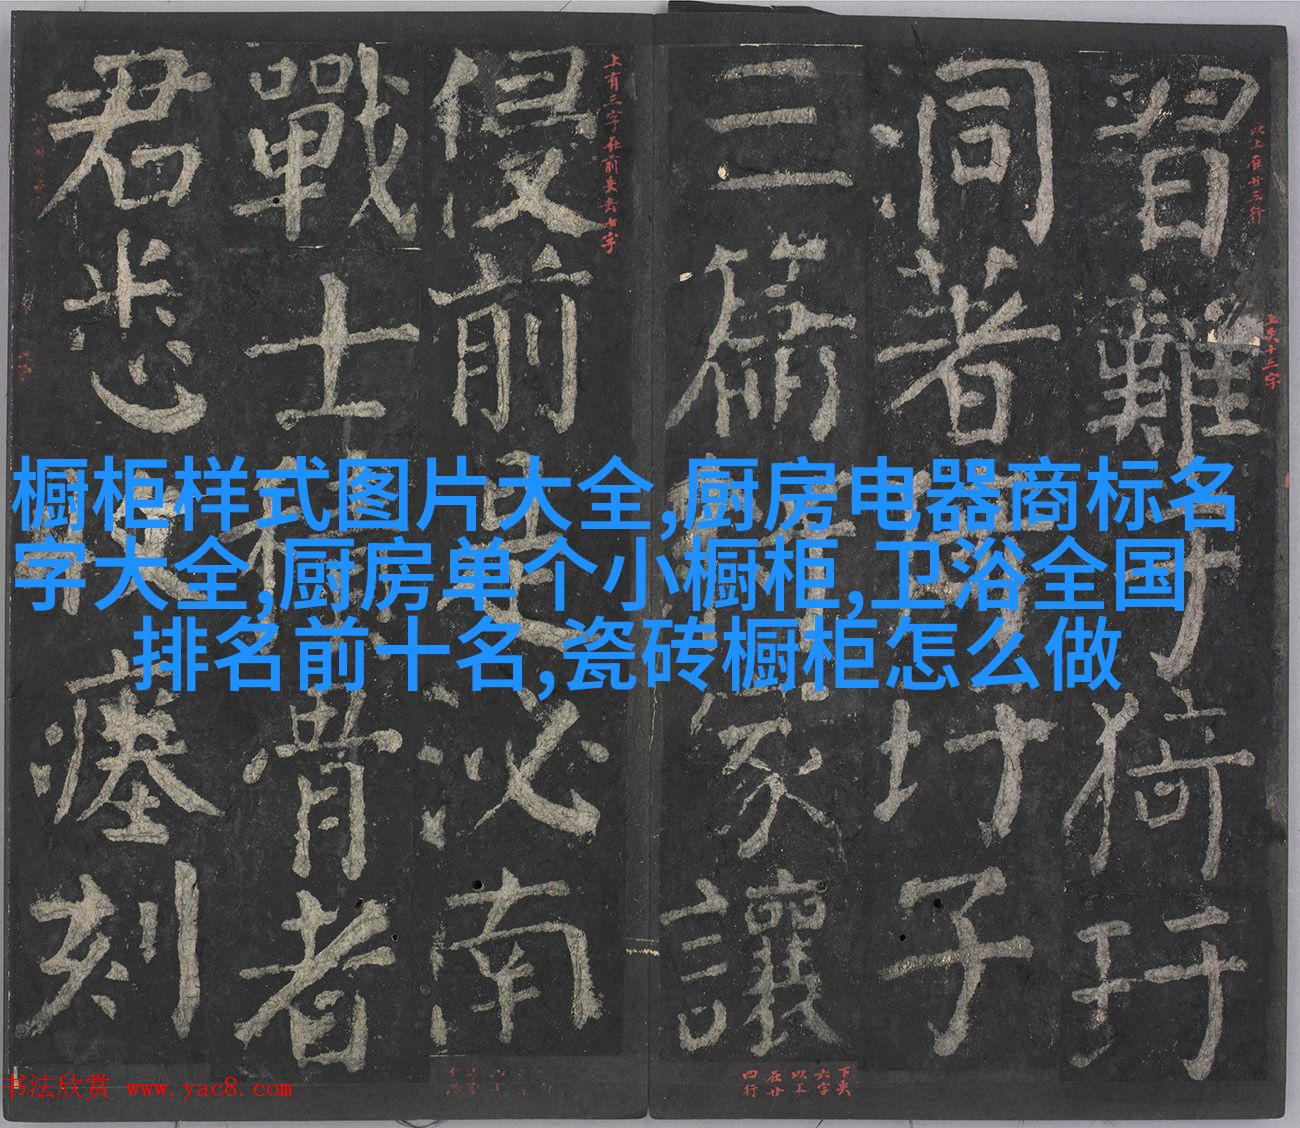 習難于猗玗
洞著
圩子
三篇
家讓
侵前
必南
戰士
骨者
君悉
瘞刻
上有三字在前
以上在廿三行
上失十三字
下失六字以上在廿四行
橱柜样式图片大全,厨房电器商标名
字大全,厨房单个小橱柜,卫浴全国
排名前十名,瓷砖橱柜怎么做
书法欣赏 www.yac8.com